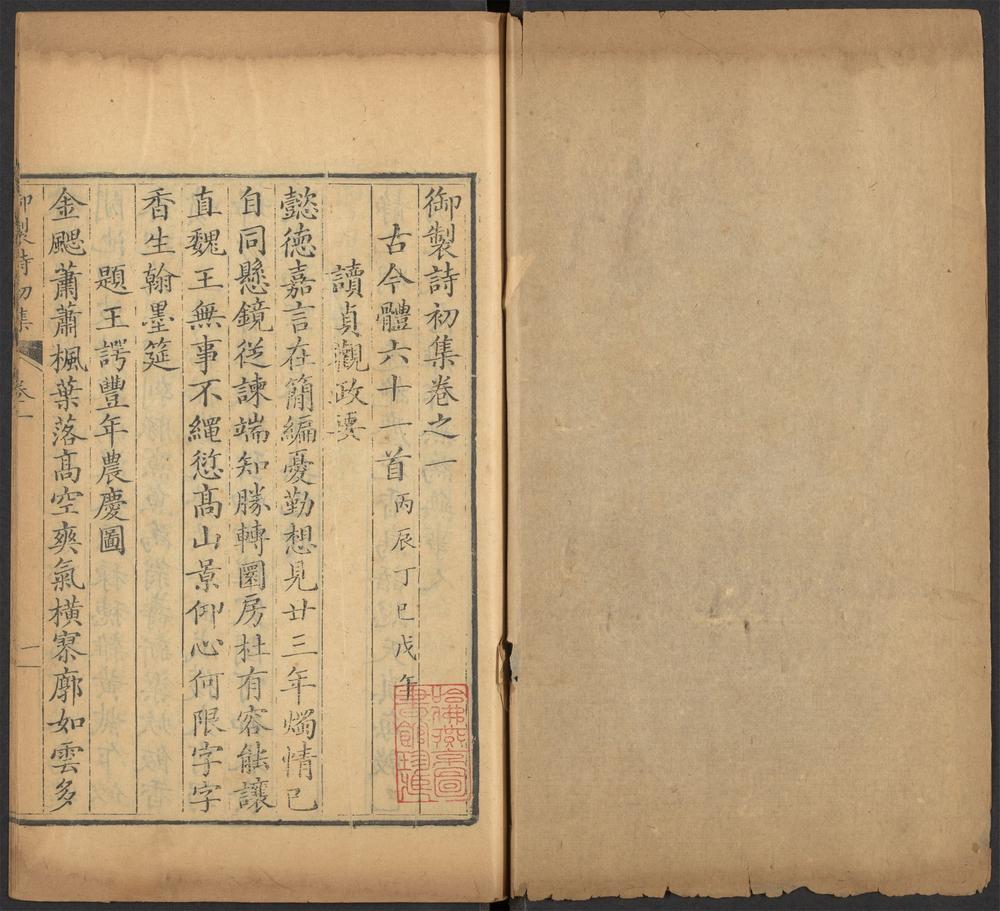 御製詩初集卷之一
古今體六十一首丙辰丁巳戊午
讀貞觀政要
懿德嘉言在簡編憂勤想見廿三年燭情已
自同懸鏡從諫端知勝轉圜房杜有容能讓
直魏王無事不繩愆高山景仰心何限字字
香生翰墨筵
題王諤豐年農慶圖
金颸蕭蕭楓葉落高空爽氣橫寥廓如雲多
御製詩初集 卷一 一
哈佛燕京圖
書館珍藏